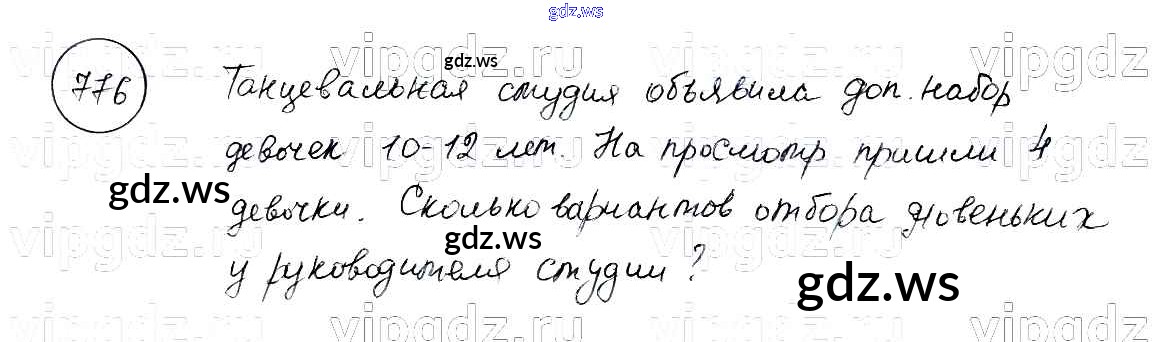 gdz.ws
vipgdz.ru vipgdz.ru vipgdz.ru vipgdz
gdz.ws
776 Танцевальная студия объявила доп. набор
девочек 10-12 лет. На просмотр пришли 4
gdz.ws
девочки. Сколько вариантов отбора новеньких
gdz.ws
у руководителя студии?
gdz.ws
vipgdz.ru vipgdz.ru vipgdz